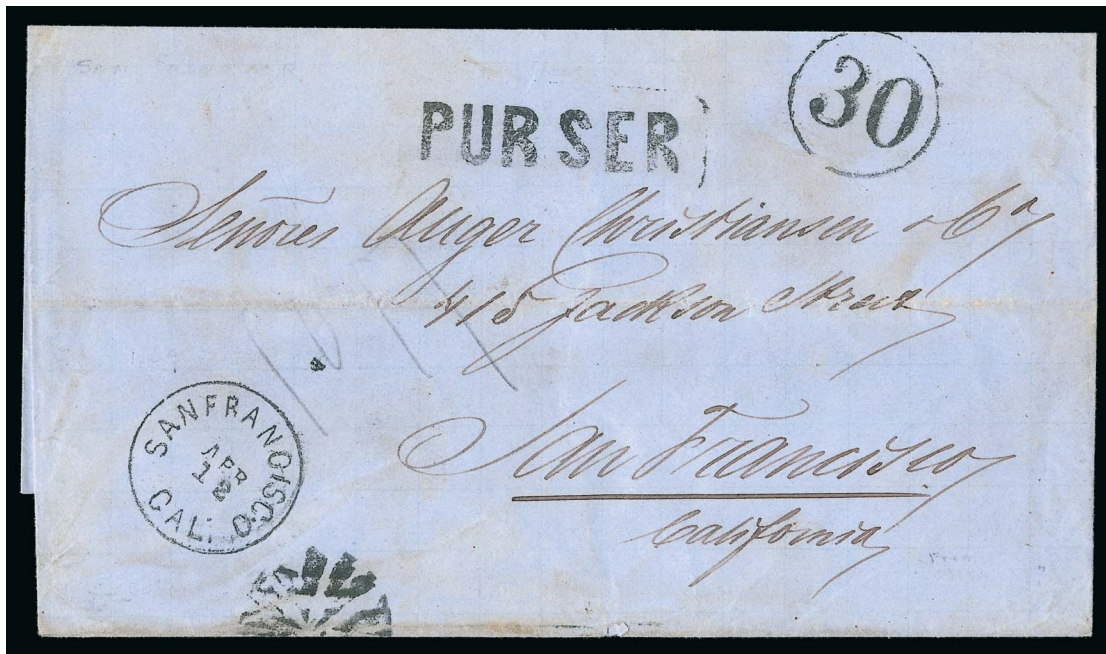 30
PURSER
Señores Auger Christiansen & Cª
415 Jackson Street
San Francisco
California
SAN FRANCISCO
APR
18
CAL.